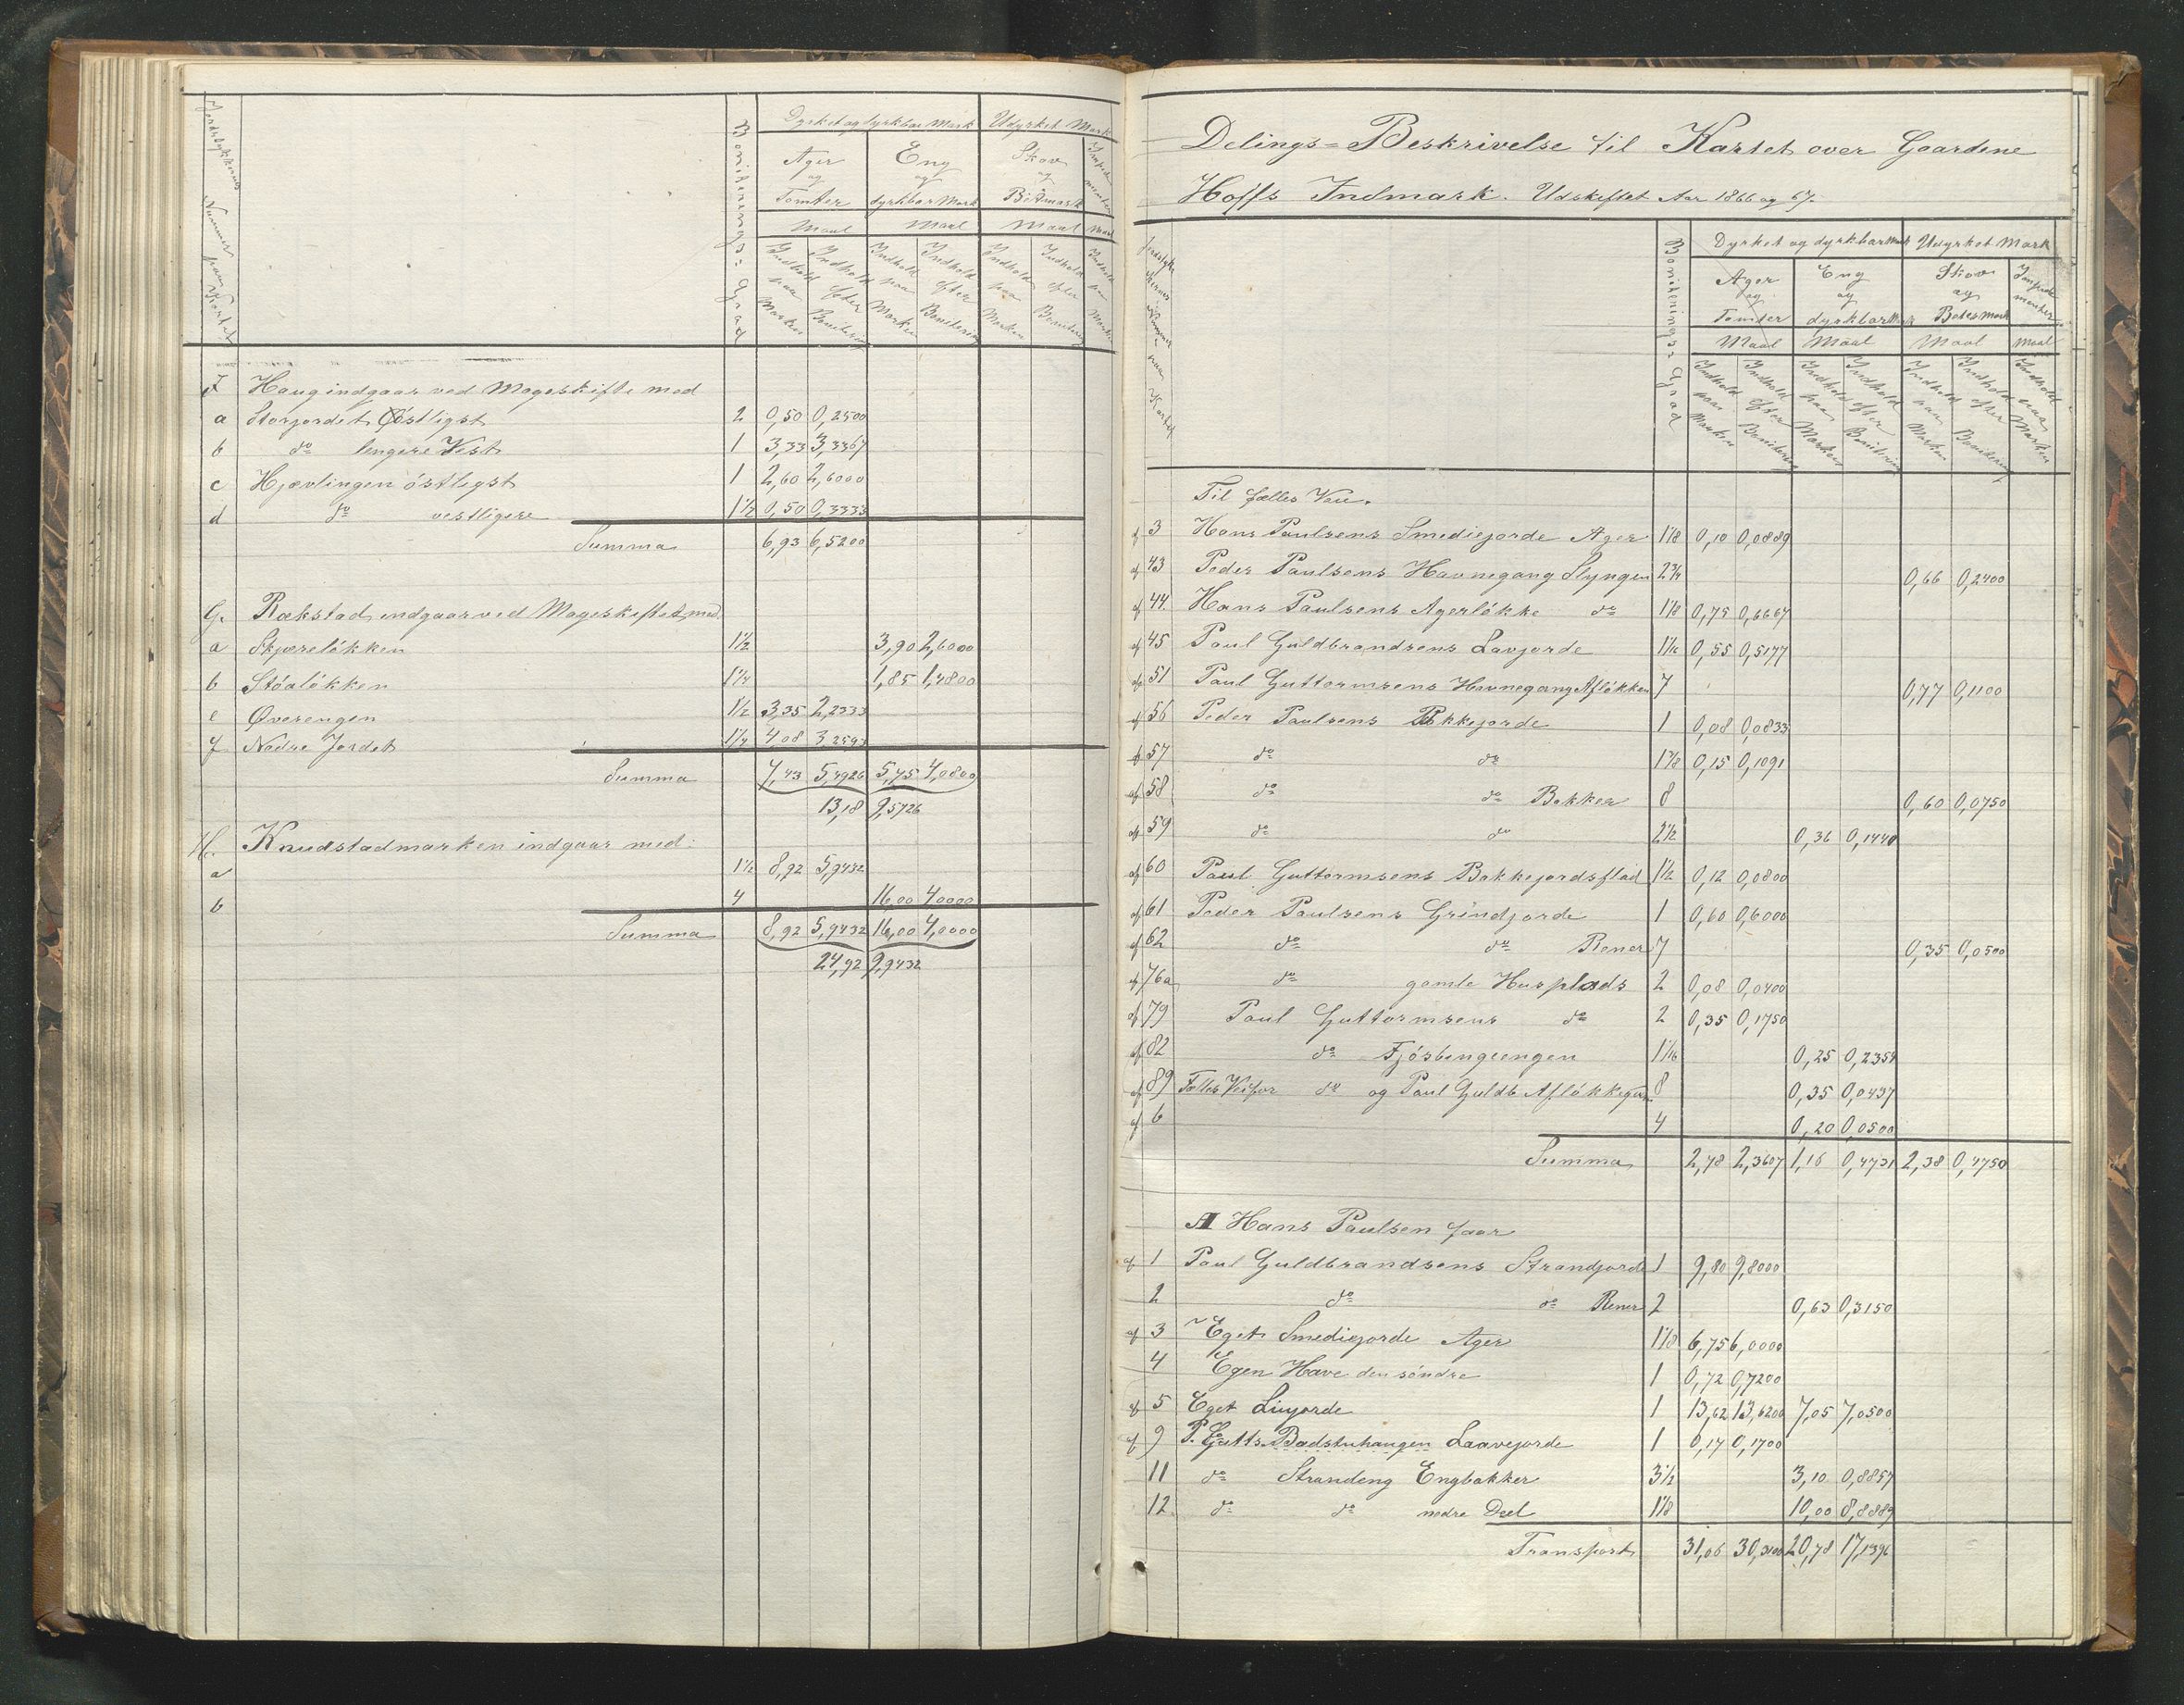 Jordstykkernes Nummer paa Kartet
Boniterings-Grad
Dyrket og dyrkbar Mark Udyrket Mark
Ager og Tomter
Eng og dyrkbar Mark
Skov og Beitmark
Impedimenter
Maal Maal Maal Maal
Indhold paa Marken
Indhold efter Bonitering
Indhold paa Marken
Indhold efter Bonitering
Indhold paa Marken
Indhold efter Bonitering
Indhold paa Marken
F Haug indgaar ved Mageskifte med
a Storjordet Östligst 2 0,50 0,2500
b do lengere Vest 1 3,33 3,3367
c Hjævlingen östligst 1 2,60 2,6000
d do vestligere 1 1/2 0,50 0,3333
Summa 6,93 6,5200
G. Rækstad indgaar ved Mageskiftet med
a Skjæreløkken 1 1/2 3,90 2,6000
b Stóaløkken 1 1/4 1,85 1,4800
e Øverengen 1 1/2 3,35 2,2333
f Nedre Jordet 1 1/4 4,08 3,2593
Summa 7,43 5,4926 5,75 4,0800
13,18 9,5726
H. Knudstadmarken indgaar med:
a 1 1/2 8,92 5,9432
b 4 16,00 4,0000
Summa 8,92 5,9432 16,00 4,0000
24,92 9,9432
Delings-Beskrivelse til Kartet over Gaardene
Hoffs Indmark. Udskiftet Aar 1866 og 67.
Jordstykkernes Nummer paa Kartet
Boniterings-Grad
Dyrket og dyrkbar Mark Udyrket Mark
Ager og Tomter
Eng og dyrkbar Mark
Skov og Betesmark
Impedimenter
Maal Maal Maal Maal
Indhold paa Marken
Indhold efter Bonitering
Indhold paa Marken
Indhold efter Bonitering
Indhold paa Marken
Indhold efter Bonitering
Indhold paa Marken
Til fælles Vei.
af 3 Hans Paulsens Smediejorde Ager 1 1/8 0,10 0,0889
af 43 Peder Paulsens Havnegang Slyngen 2 3/4 0,66 0,2400
af 44. Hans Paulsens Agerløkke do 1 1/8 0,75 0,6667
af 45 Paul Guldbrandsens Lavjorde 1 1/16 0,55 0,5177
af 51 Paul Guttormsens Havnegang Afløkken 7 0,77 0,1100
af 56 Peder Paulsens Bakkejorde 1 0,08 0,0833
af 57 do do 1 3/8 0,15 0,1091
af 58 do do Bakken 8 0,60 0,0750
af 59 do do 2 1/2 0,36 0,1440
af 60 Paul Guttormsens Bakkejordsflad 1 1/2 0,12 0,0800
af 61 Peder Paulsens Grindjorde 1 0,60 0,6000
af 62 do do Rener 7 0,35 0,0500
af 76a do gamle Husplads 2 0,08 0,0400
af 79 Paul Guttormsens do 2 0,35 0,1750
af 82 do Fjösbingeengen 1 1/16 0,25 0,2354
af 89 Fælles Vei for do og Paul Guldb Afløkkegan 8 0,35 0,0437
af 6 4 0,20 0,0500
Summa 2,78 2,3607 1,16 0,4731 2,38 0,4750
A Hans Paulsen faar
af 1 Paul Guldbrandsens Strandjorde 1 9,80 9,8000
2 do do Rener 2 0,63 0,3150
af 3 Eget Smediejorde Ager 1 1/8 6,75 6,0000
4 Egen Have den söndre 1 0,72 0,7200
af 5 Eget Liujorde 1 13,62 13,6200 7,05 7,0500
af 9 P. Gutts. Badstuhaugen Laavejorde 1 0,17 0,1700
11 do Strandeng Engbakker 3 1/2 3,10 0,8857
12 do do nedre Deel 1 1/8 10,00 8,8889
Transport 31,06 30,3100 20,78 17,1396